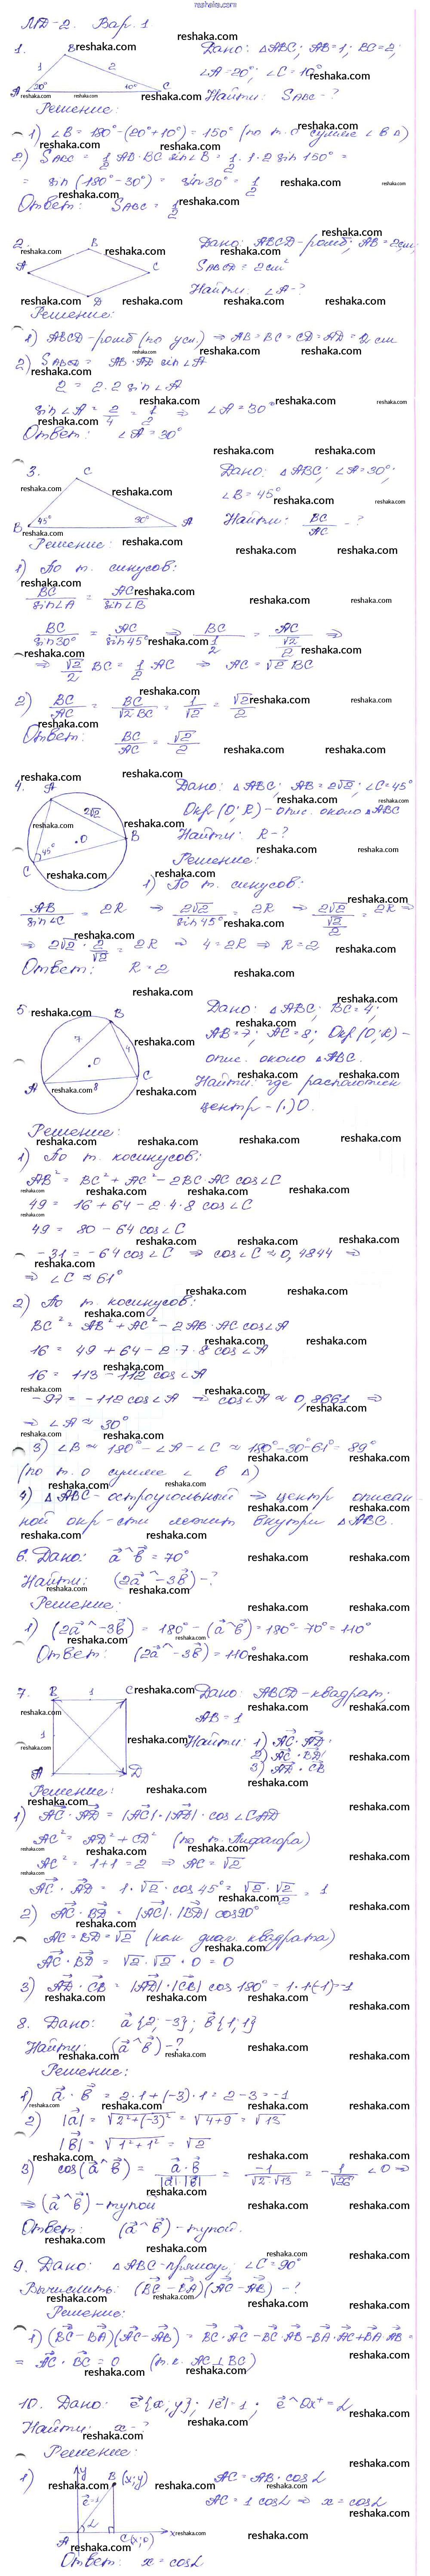 reshaka.com
МД-2. Вар. 1
1.
B
1
2
A
20°
10°
C
Дано: △ABC; AB=1; BC=2;
∠A=20°; ∠C=10°
Найти: S_ABC - ?
Решение:
1) ∠B = 180°-(20°+10°) = 150° (по т. о сумме ∠ в △)
2) S_ABC = 1/2 AB·BC sin∠B = 1/2·1·2 sin150° =
= sin(180°-30°) = sin30° = 1/2
Ответ: S_ABC = 1/2
2.
B
A
C
D
Дано: ABCD-ромб; AB=2см;
S_ABCD = 2см²
Найти: ∠A-?
Решение:
1) ABCD-ромб (по усл.) ⇒ AB=BC=CD=AD=2см
2) S_ABCD = AB·AD sin∠A
2 = 2·2 sin∠A
sin∠A = 2/4 = 1/2 ⇒ ∠A=30°
Ответ: ∠A=30°
3.
C
B
45°
30°
A
Дано: △ABC; ∠A=30°;
∠B=45°
Найти: BC/AC - ?
Решение:
1) По т. синусов:
BC/sin∠A = AC/sin∠B
BC/sin30° = AC/sin45° ⇒ BC/(1/2) = AC/(√2/2) ⇒
⇒ √2/2 BC = 1/2 AC ⇒ AC=√2 BC
2) BC/AC = BC/(√2 BC) = 1/√2 = √2/2
Ответ: BC/AC = √2/2
4.
A
2√2
O
B
45°
C
Дано: △ABC; AB=2√2; ∠C=45°
Окр(O;R)-опис. около △ABC
Найти: R-?
Решение:
1) По т. синусов:
AB/sin∠C = 2R ⇒ 2√2/sin45° = 2R ⇒ 2√2/(√2/2) = 2R ⇒
⇒ 2√2·2/√2 = 2R ⇒ 4=2R ⇒ R=2
Ответ: R=2
5
B
7
4
O
A
8
C
Дано: △ABC; BC=4;
AB=7; AC=8; Окр(O;R)-
опис. около △ABC.
Найти: где расположен
центр-(.)O.
Решение:
1) По т. косинусов:
AB² = BC²+AC²-2BC·AC cos∠C
49 = 16+64-2·4·8 cos∠C
49 = 80-64cos∠C
-31 = -64cos∠C ⇒ cos∠C≈0,4844 ⇒
⇒ ∠C≈61°
2) По т. косинусов:
BC² = AB²+AC²-2AB·AC cos∠A
16 = 49+64-2·7·8 cos∠A
16 = 113-112 cos∠A
-97 = -112cos∠A ⇒ cos∠A≈0,8661 ⇒
⇒ ∠A≈30°
3) ∠B≈180°-∠A-∠C≈180°-30°-61°=89°
(по т. о сумме ∠ в △)
4) △ABC-остроугольный ⇒ центр описан
ной окр-сти лежит внутри △ABC.
6. Дано: a⃗^b⃗=70°
Найти: (2a⃗^-3b⃗)-?
Решение:
1) (2a⃗^-3b⃗)=180°-(a⃗^b⃗)=180°-70°=110°
Ответ: (2a⃗^-3b⃗)=110°
7.
B
1
C
1
A
D
Дано: ABCD-квадрат;
AB=1
Найти: 1) AC⃗·AD⃗;
2) AC⃗·BD⃗;
3) AD⃗·CB⃗
Решение:
1) AC⃗·AD⃗ = |AC⃗|·|AD⃗|·cos∠CAD
AC² = AD²+CD² (по т. Пифагора)
AC² = 1+1=2 ⇒ AC=√2
AC⃗·AD⃗ = 1·√2·cos45° = √2·√2/2 = 1
2) AC⃗·BD⃗ = |AC⃗|·|BD⃗| cos90°
AC=BD=√2 (как диаг. квадрата)
AC⃗·BD⃗ = √2·√2·0=0
3) AD⃗·CB⃗ = |AD⃗|·|CB⃗| cos180° = 1·1·(-1)=-1
8. Дано: a⃗{2;-3}; b⃗{1;1}
Найти: (a⃗^b⃗)-?
Решение:
1) a⃗·b⃗ = 2·1+(-3)·1=2-3=-1
2) |a⃗| = √(2²+(-3)²) = √(4+9) = √13
|b⃗| = √(1²+1²) = √2
3) cos(a⃗^b⃗) = a⃗·b⃗/(|a⃗|·|b⃗|) = -1/(√2·√13) = -1/√26 <0 ⇒
⇒ (a⃗^b⃗)-тупой
Ответ: (a⃗^b⃗)-тупой.
9. Дано: △ABC-прямоуг; ∠C=90°
Вычислить: (BC⃗-BA⃗)(AC⃗-AB⃗)-?
Решение:
1) (BC⃗-BA⃗)(AC⃗-AB⃗) = BC⃗·AC⃗-BC⃗·AB⃗-BA⃗·AC⃗+BA⃗·AB⃗=
= AC⃗·BC⃗=0 (т.к. AC⊥BC)
10. Дано: e⃗{x;y}; |e⃗|=1; e⃗^Ox⁺=α
Найти: x-?
Решение:
1)
y
B(x;y)
e⃗=1
α
A
C(x;0)
x
AC=AB·cosα
AC=1·cosα ⇒ x=cosα
Ответ: x=cosα